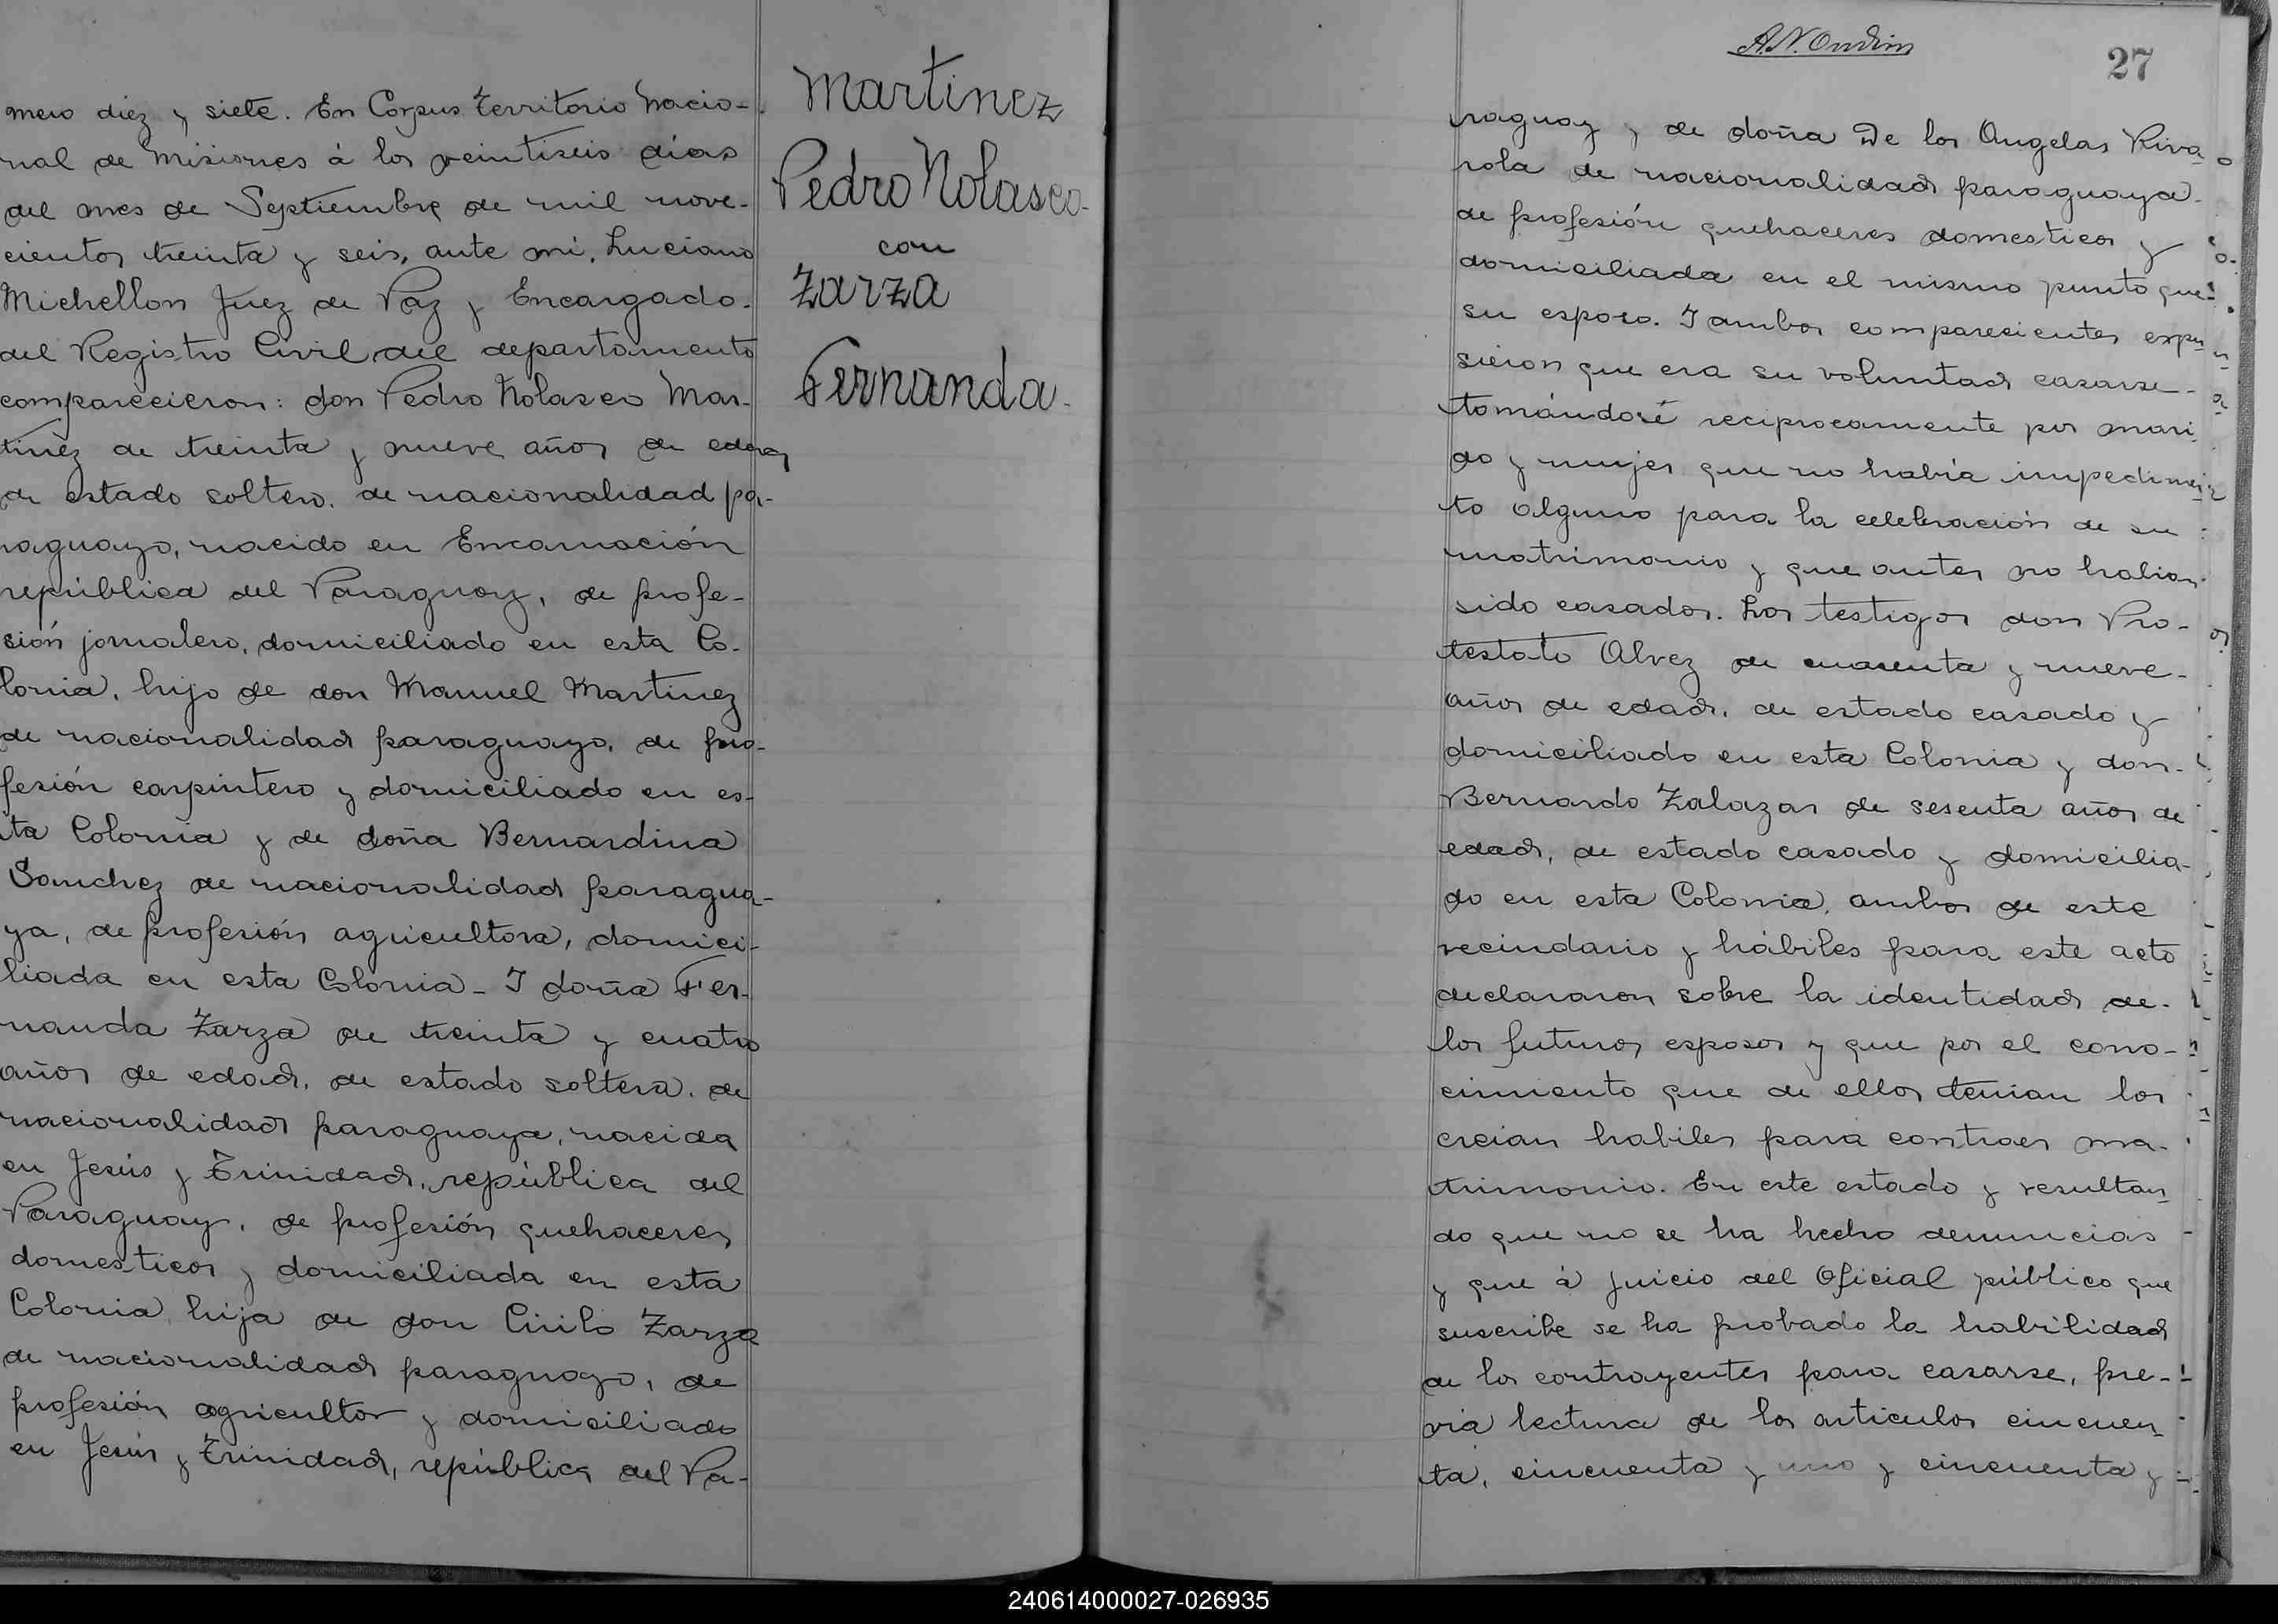 mero diez y siete. En Corpus Territorio Nacio-
nal de Misiones á los veintiseis dias
del mes de Septiembre de mil nove-
cientos treinta y seis, ante mi, Luciano
Michellon Juez de Paz y Encargado
del Registro Civil del departamento
comparecieron: don Pedro Nolasco Mar-
tinez de treinta y nueve años de edad
de estado soltero, de nacionalidad pa-
raguayo, nacido en Encarnación
república del Paraguay, de profe-
sión jornalero, domiciliado en esta Co-
lonia, hijo de don Manuel Martinez
de nacionalidad paraguayo, de pro-
fesión carpintero y domiciliado en es-
ta Colonia y de doña Bernardina
Sanchez de nacionalidad paragua-
ya, de profesión agricultora, domici-
liada en esta Colonia - I doña Fer-
nanda Zarza de treinta y cuatro
años de edad, de estado soltera, de
nacionalidad paraguaya, nacida
en Jesús y Trinidad, república del
Paraguay, de profesión quehaceres
domesticos y domiciliada en esta
Colonia, hija de don Cirilo Zarza
de nacionalidad paraguayo, de
profesión agricultor y domiciliado
en Jesús y Trinidad, república del Pa-
Martinez
Pedro Nolasco
con
Zarza
Fernanda
27
raguay y de doña De los Angelas Riva
rola de nacionalidad paraguaya
de profesión quehaceres domesticos y
domiciliada en el mismo punto que
su esposo. I ambos comparecientes expu
sieron que era su voluntad casarse
tomándosé reciprocamente por mari
do y mujer que no había impedimen
to alguno para la celebración de su
matrimonio y que antes no habian
sido casados. Los testigos don Pro-
testato Alvez de cuarenta y nueve
años de edad, de estado casado y
domiciliado en esta Colonia y don
Bernardo Zalazar de sesenta años de
edad, de estado casado y domicilia-
do en esta Colonia, ambos de este
vecindario y hábiles para este acto
declararon sobre la identidad de
los futuros esposos y que por el cono-
cimiento que de ellos tenian los
creian habiles para contraer ma-
trimonio. En este estado y resultan
do que no se ha hecho denuncias
y que á juicio del Oficial público que
suscribe se ha probado la habilidad
de los contrayentes para casarse, pre-
via lectura de los articulos cincuen
ta, cincuenta y uno y cincuenta y
240614000027-026935